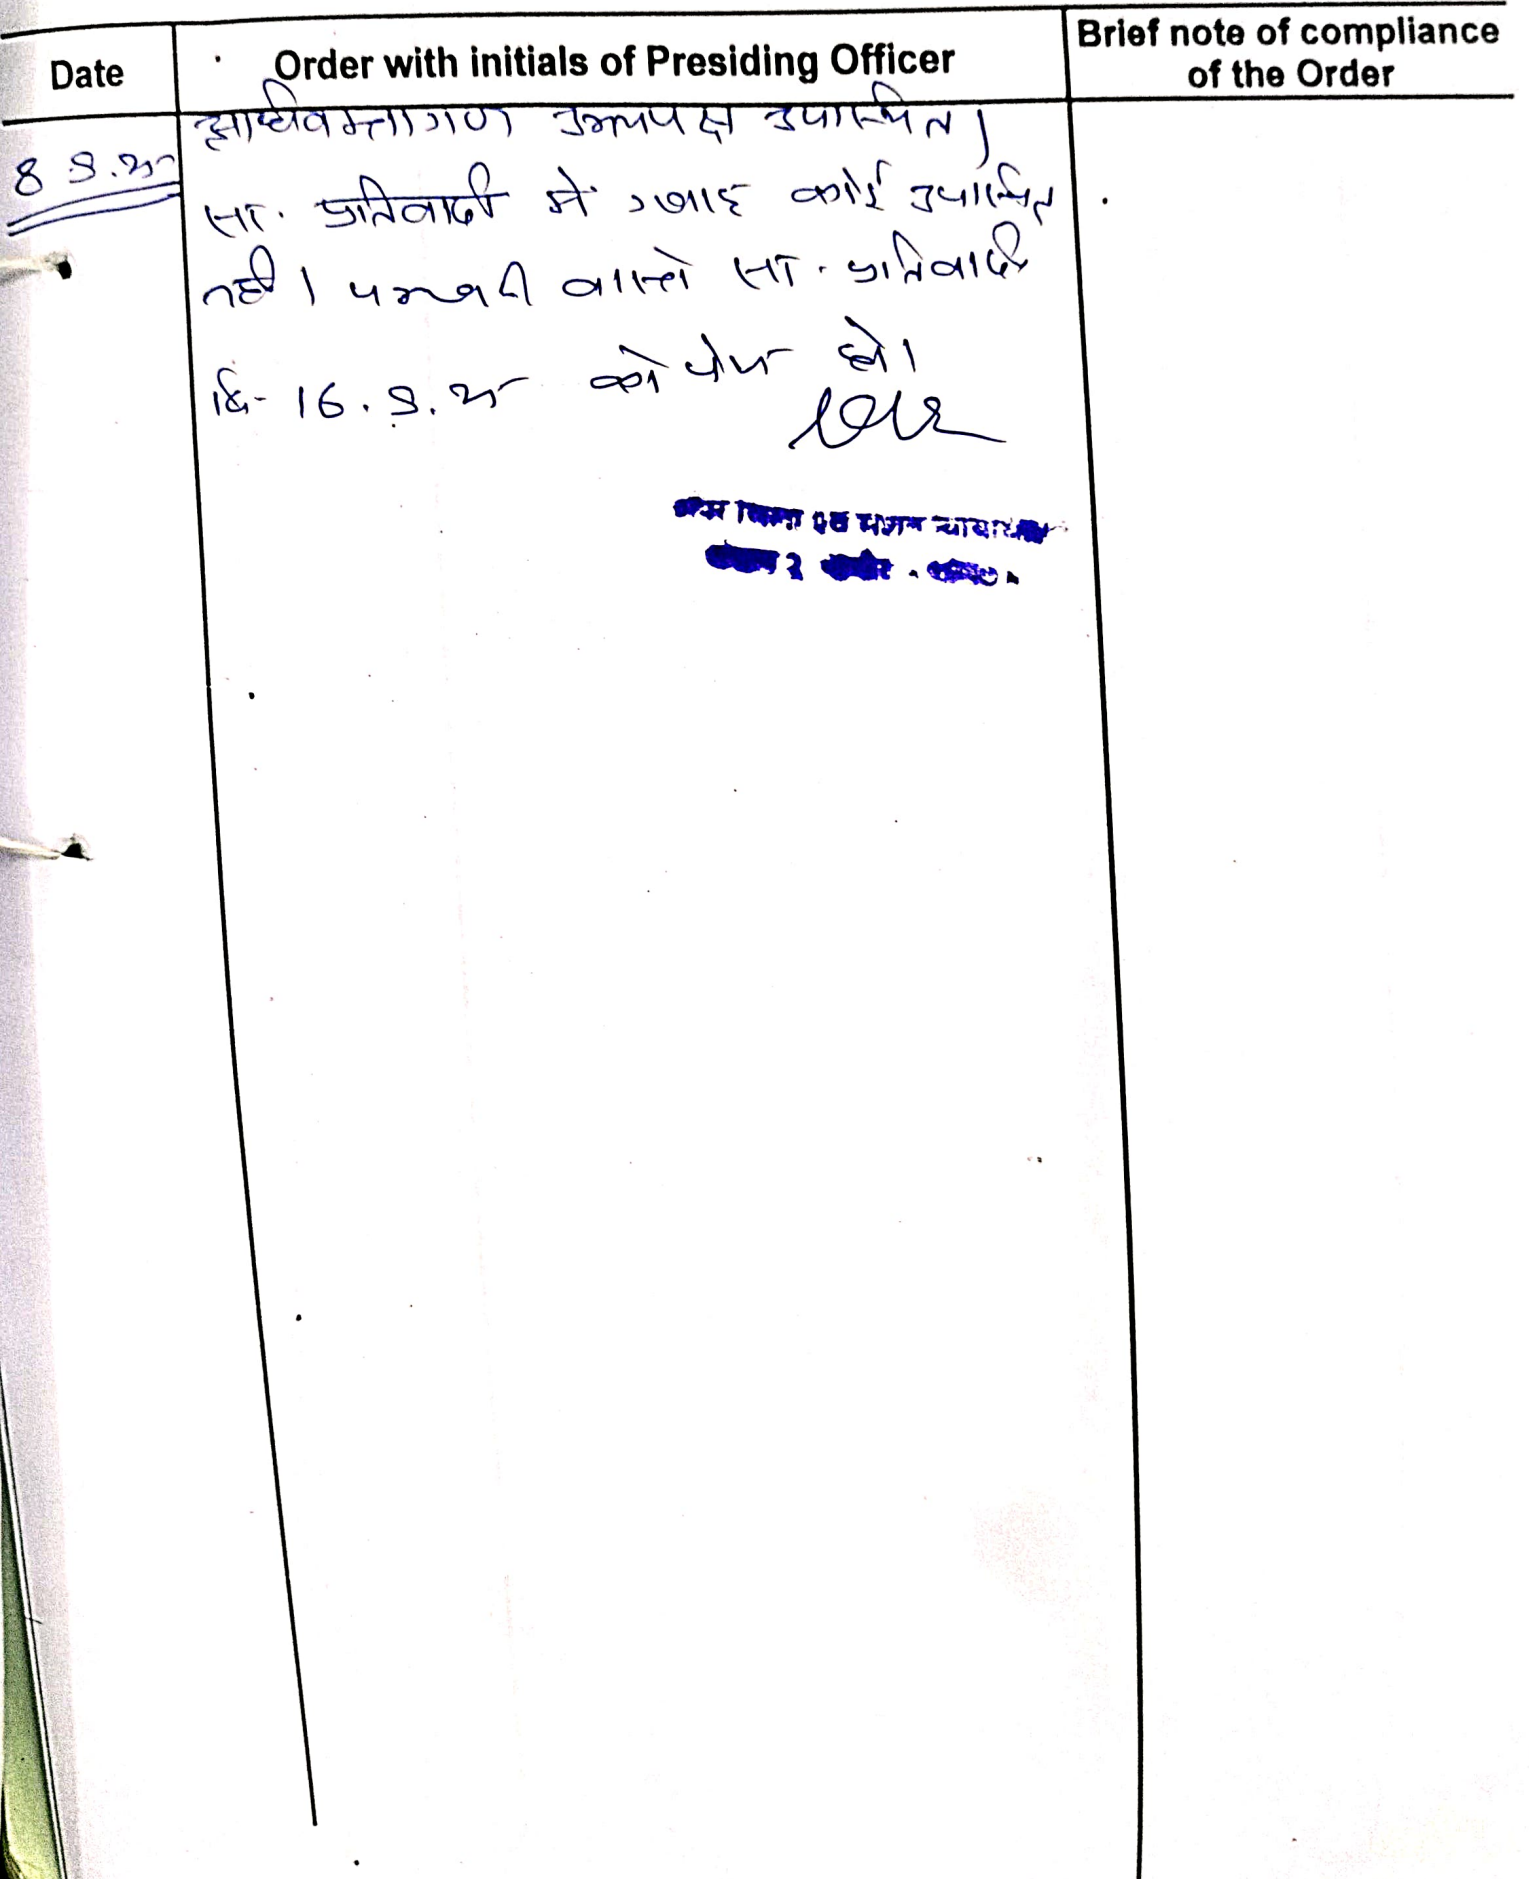 Date
Order with initials of Presiding Officer
Brief note of compliance
of the Order
अधिवक्तागण उभयपक्ष उपस्थित।
8.9.25
सा. प्रतिवादी में गवाह कोई उपस्थित
नहीं। पत्रावली वास्ते सा. प्रतिवादी
दि- 16.9.25 को पेश हो।